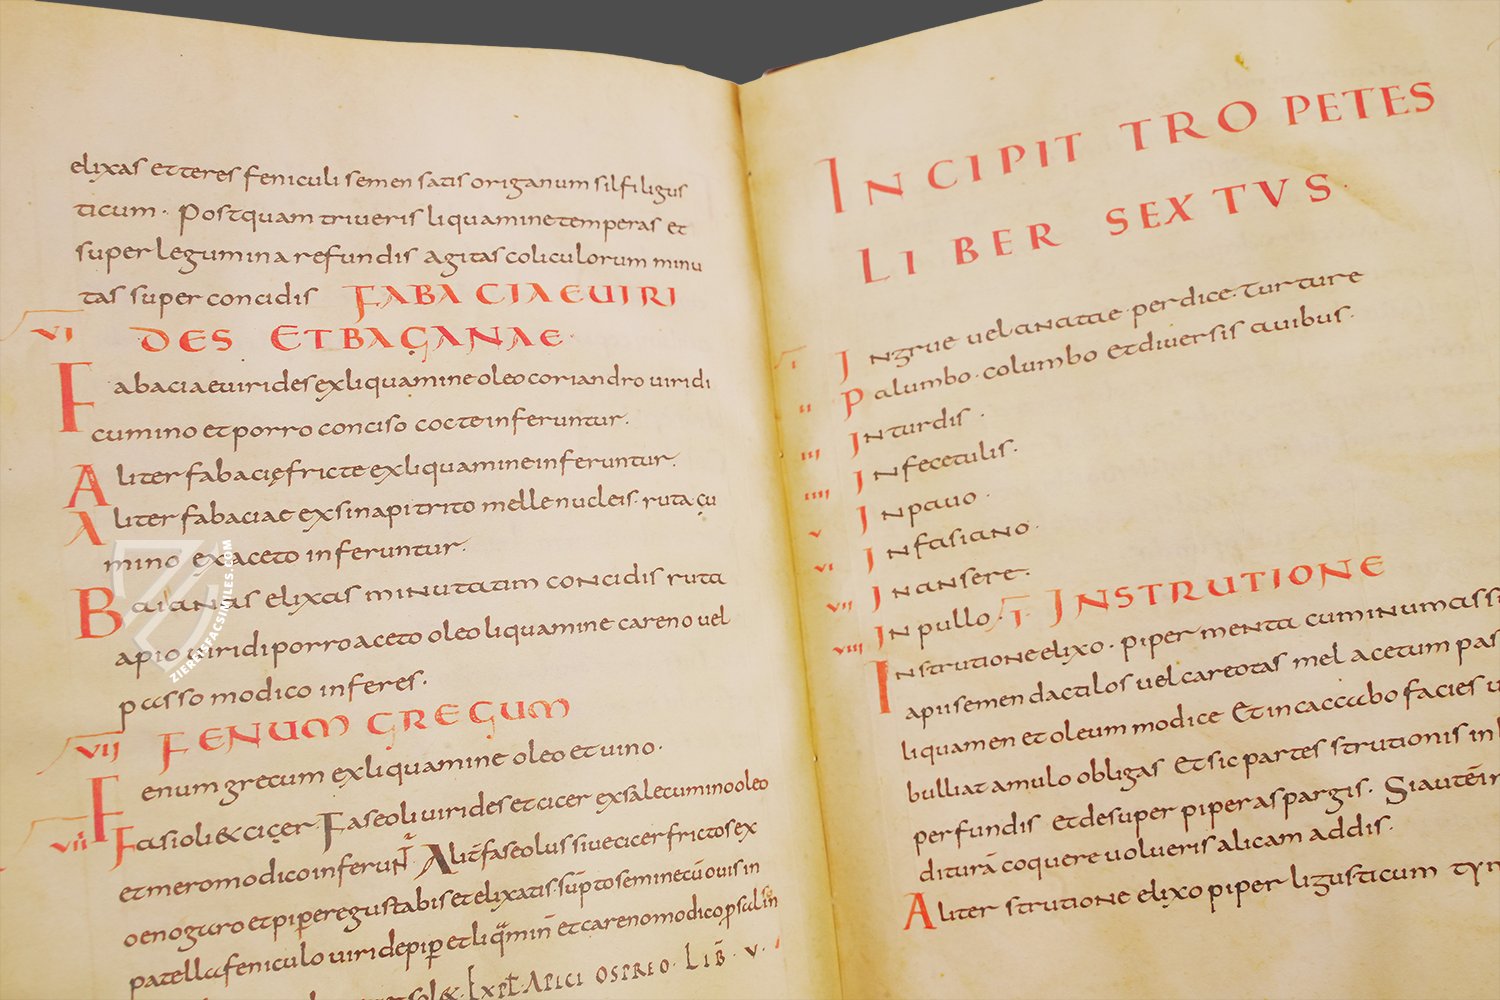 elixas et teres feniculi semen satis origanum silfi ligus
ticum · Postquam triveris liquamine temperas et
super legumina refundis agitas coliculorum minu
tas super concidis FABACIAE VIRI
VI DES ET BAÇANAE ·
Fabaciae virides ex liquamine oleo coriandro viridi
cumino et porro conciso cocte inferuntur ·
Aliter fabacię fricte ex liquamine inferuntur ·
Aliter fabaciae ex sinapi trito melle nucleis · ruta çu
mino ex aceto inferuntur ·
Baianas elixas minutatim concidis ruta
apio viridi porro aceto oleo liquamine careno vel
passo modico inferes ·
VII FENUM GREÇUM
Fenum grecum ex liquamine oleo et vino ·
VIII Fasioli & ciçer · Faseoli virides et cicer ex sale cumino oleo
et mero modico inferunt̄ Alit̄ faseolus sive cicer frictos ex
oenogaro et pipere gustabis et elixatis sūpto semine cū ovis in
patella feniculo viride pip̄ et liq̄min̄ et careno modico p̄ salsis
EXPL̄ APICI OSPREO · LIB̄ · V ·
INCIPIT TROPETES
LIBER SEXTVS ·
I In grue vel anatae perdice · turture
Palumbo · columbo et diversis avibus ·
II In turdis ·
III In fecetulis ·
IIII In pavo ·
V In fasiano ·
VI In ansere ·
VII In pullo · I · IN STRUTIONE
VIII In strutione elixo · piper menta cuminum assu
apii semen dactilos vel careotas mel acetum pas
liquamen et oleum modice Et in caccabo facies u
bulliat amulo obligas Et sic partes strutionis in l
perfundis et desuper piper aspargis · Si autēin
diturā coquere volueris alicam addis ·
Aliter strutione elixo piper ligusticum tym
ZIEREISFACSIMILES.COM